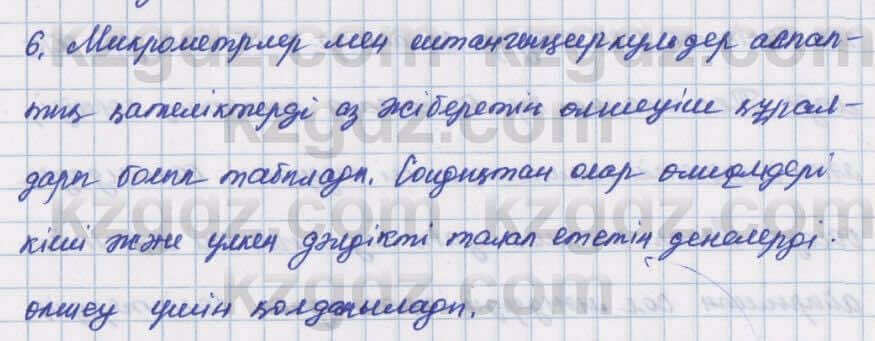 6. Микрометрлер мен штангенциркульдер аспап-
тық қателіктерді аз жіберетін өлшеуіш құрал-
дары болып табылады. Сондықтан олар өлшемдері
кіші және үлкен дәлдікті талап ететін денелерді
өлшеу үшін қолданылады.
kzgdz.com